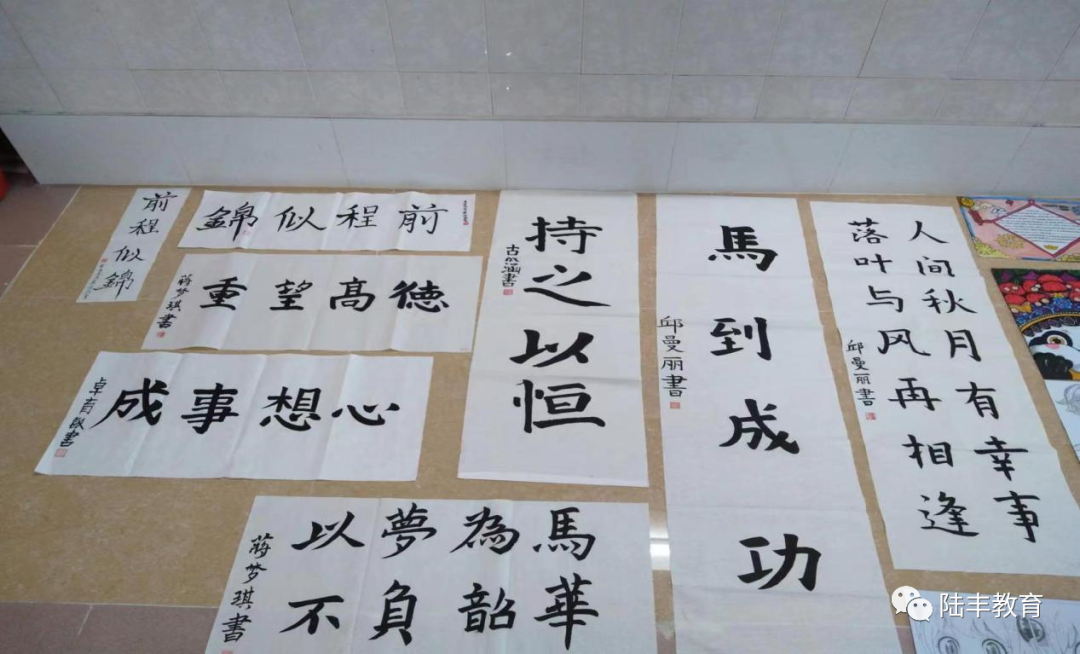 前程似錦
前程似錦
德髙望重
蔣梦琪書
心想事成
持之以恒
馬到成功
邱曼丽書
人间秋月有幸事
落叶与风再相逢
邱曼丽書
以夢為馬
不負韶華
蔣梦琪書
陆丰教育